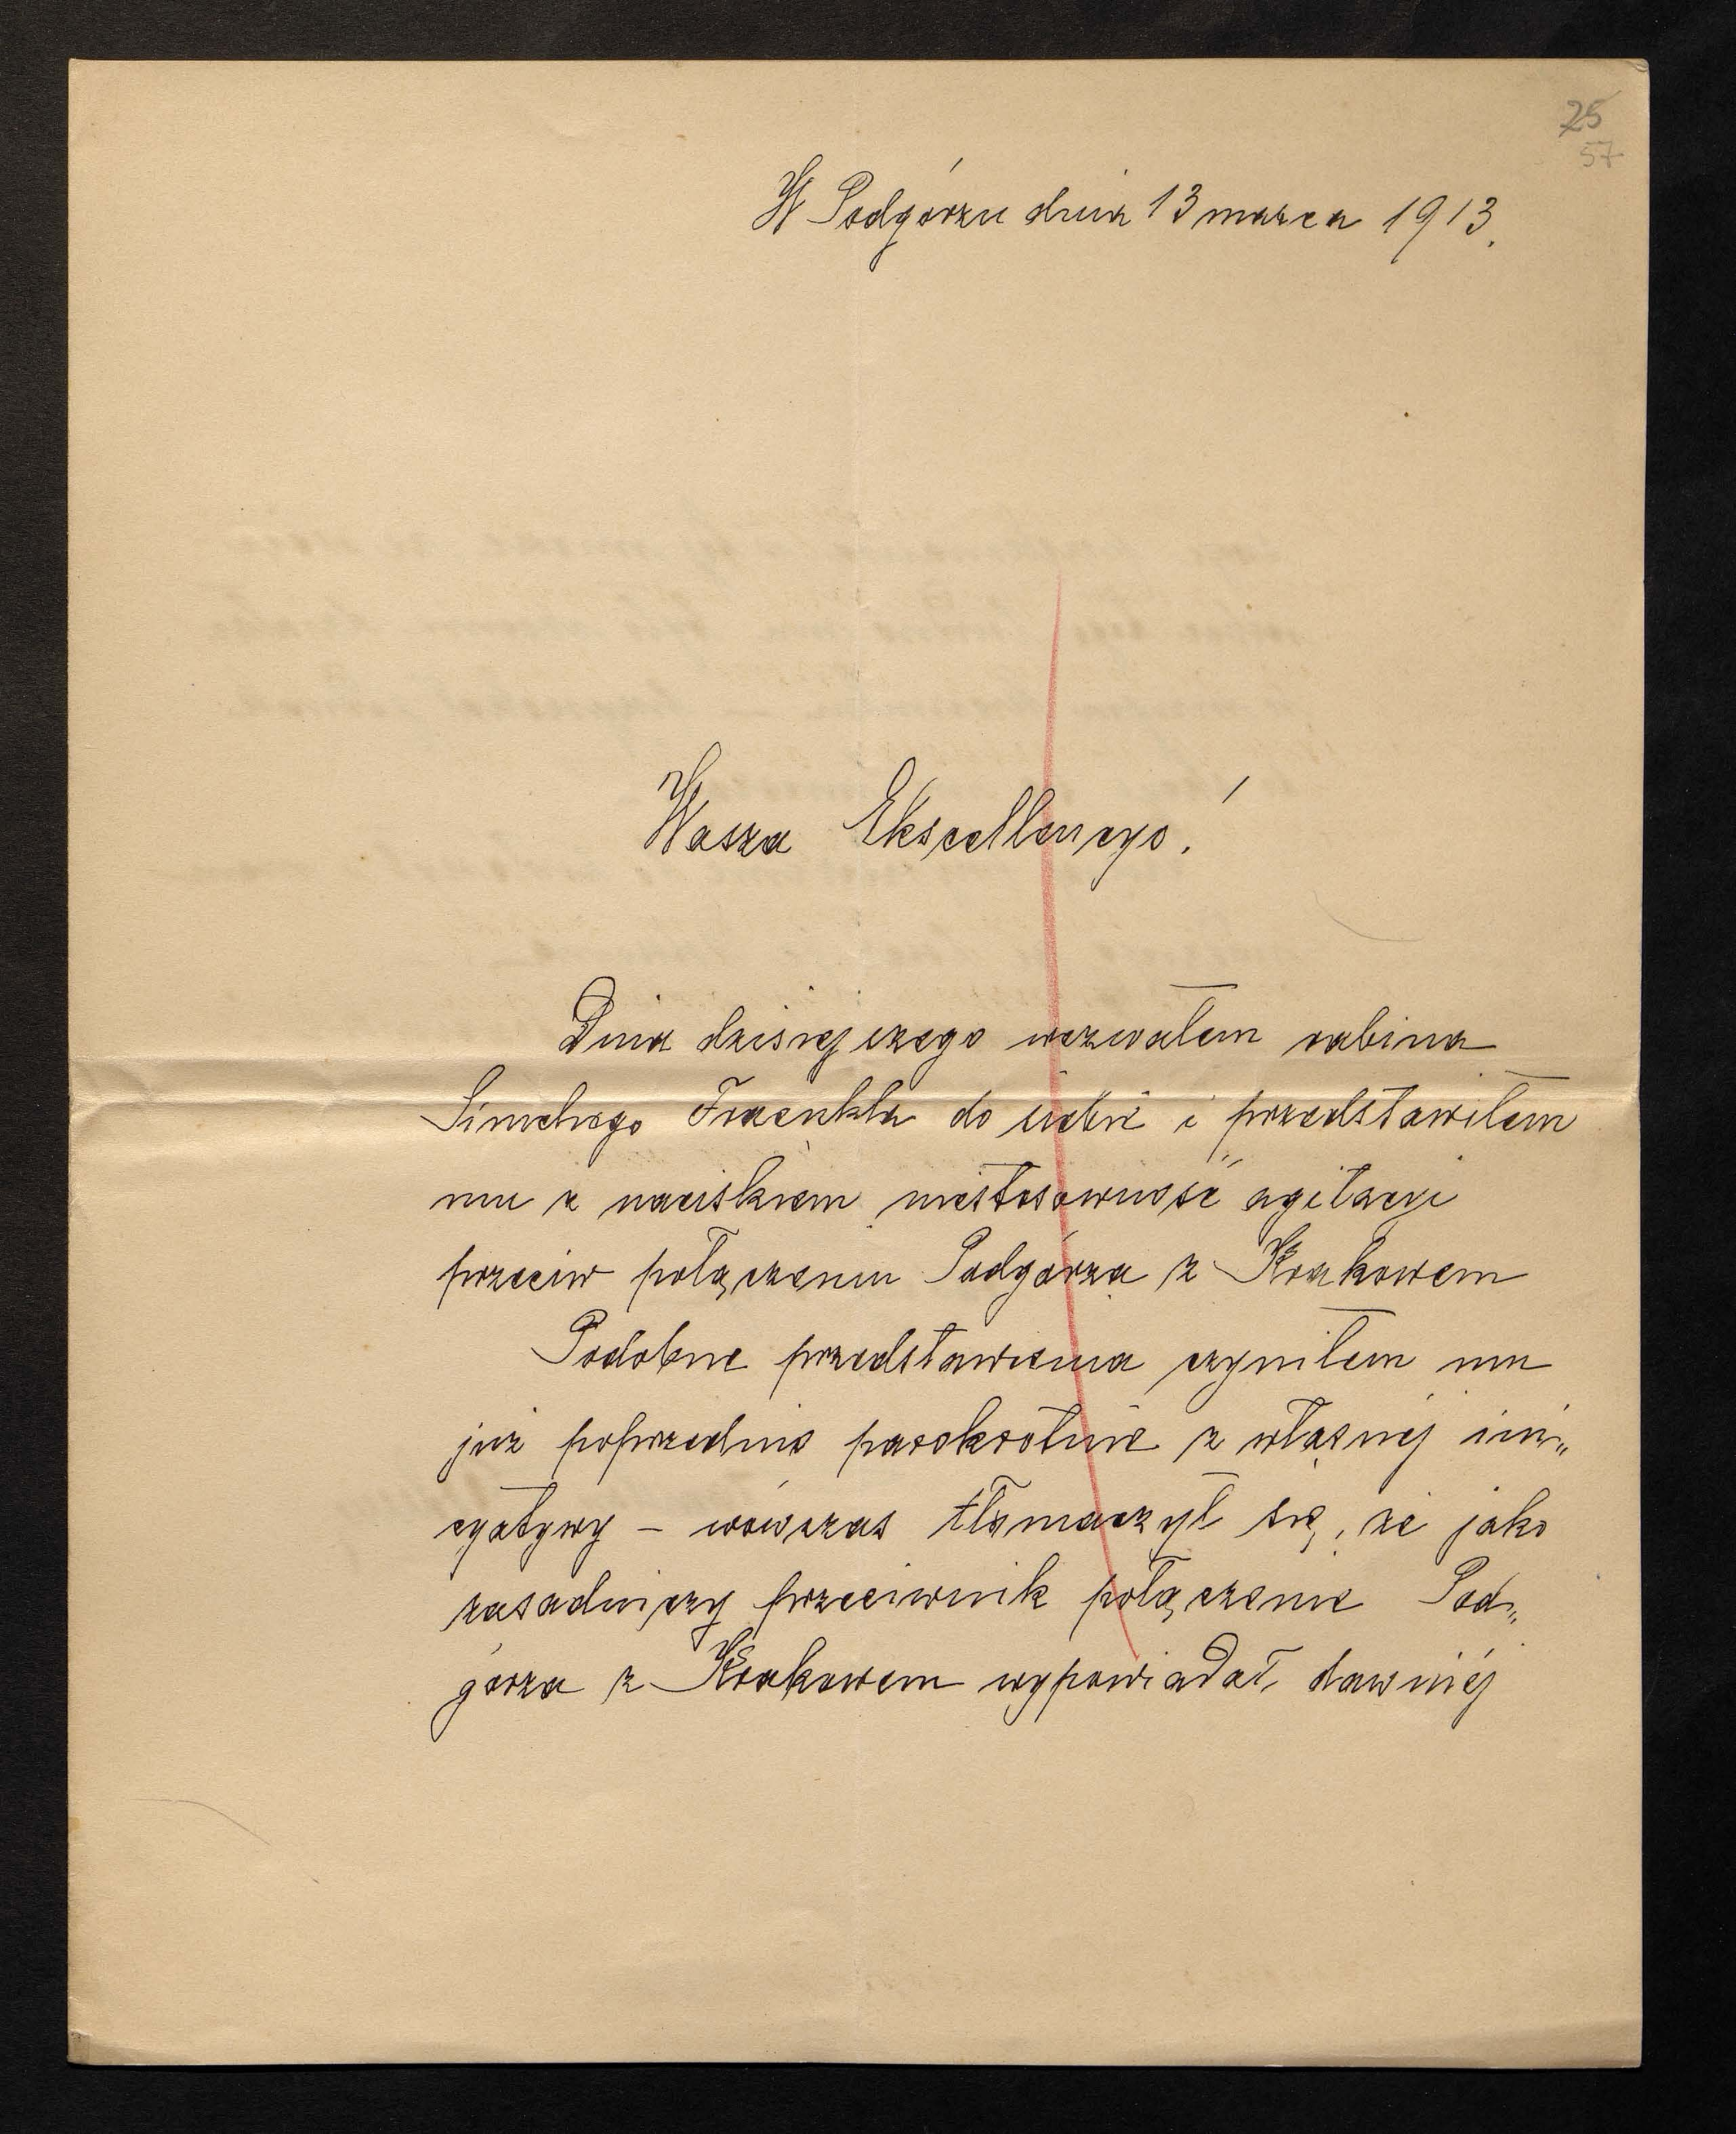 25
57
W Podgórzu dnia 13 marca 1913.
Wasza Ekscellencyo!
Dnia dzisiejszego wezwałem rabina
Simchego Fraenkla do siebie i przedstawiłem
mu z naciskiem niestosowność agitacyi
przeciw połączeniu Podgórza z Krakowem
Podobne przedstawienia czyniłem mu
już poprzednio parokrotnie z własnej ini„
cyatywy – wówczas tłomaczył się, że jako
zasadniczy przeciwnik połączenie Pod„
górza z Krakowem wypowiadał, dawniéj